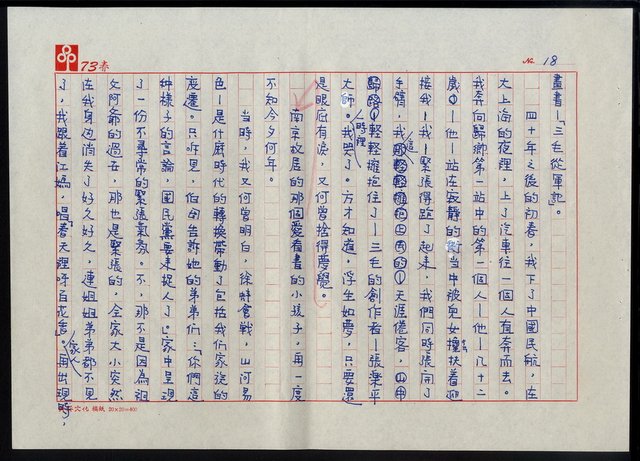 73春
No. 18
畫書—「三毛從軍記」。
四十年之後的初春，我下了中國民航，在
大上海的夜裡，上了汽車往一個人直奔而去。
我奔向歸鄉第一站中的第一個人—他—八十二
歲—他—站在寂靜的街當中被兒女攙扶着迎
接我—我—緊張得跑了起來，我們同時張開了
手臂，我這天涯倦客，
輕輕擁抱住了—三毛的創作者—張樂平
大師。我哭了。方才知道，浮生如夢，只要還
時裡
是眼底有淚，又何嘗捨得夢覺。
南京故居的那個愛看書的小孩子，再一度
不知今夕何年。
當時，我又何嘗明白，徐蚌會戰，山河易
色—是什麼時代的轉換帶動了包括我們家族的
度遷。只聽見，伯母告訴她的弟弟們：「你們這
種樣子的言論，國民黨要來捉人了。」家中呈現
了一份不尋常的緊張氣氛。不，那不是因為祖
父阿爺的過去，那也是緊張的，全家大小突然
在我身邊消失了好久好久，連姐姐弟弟都不見
了，我跟着江媽，唱「春天裡呀百花香」。家人再出現時，
文化稿紙 20×20=400